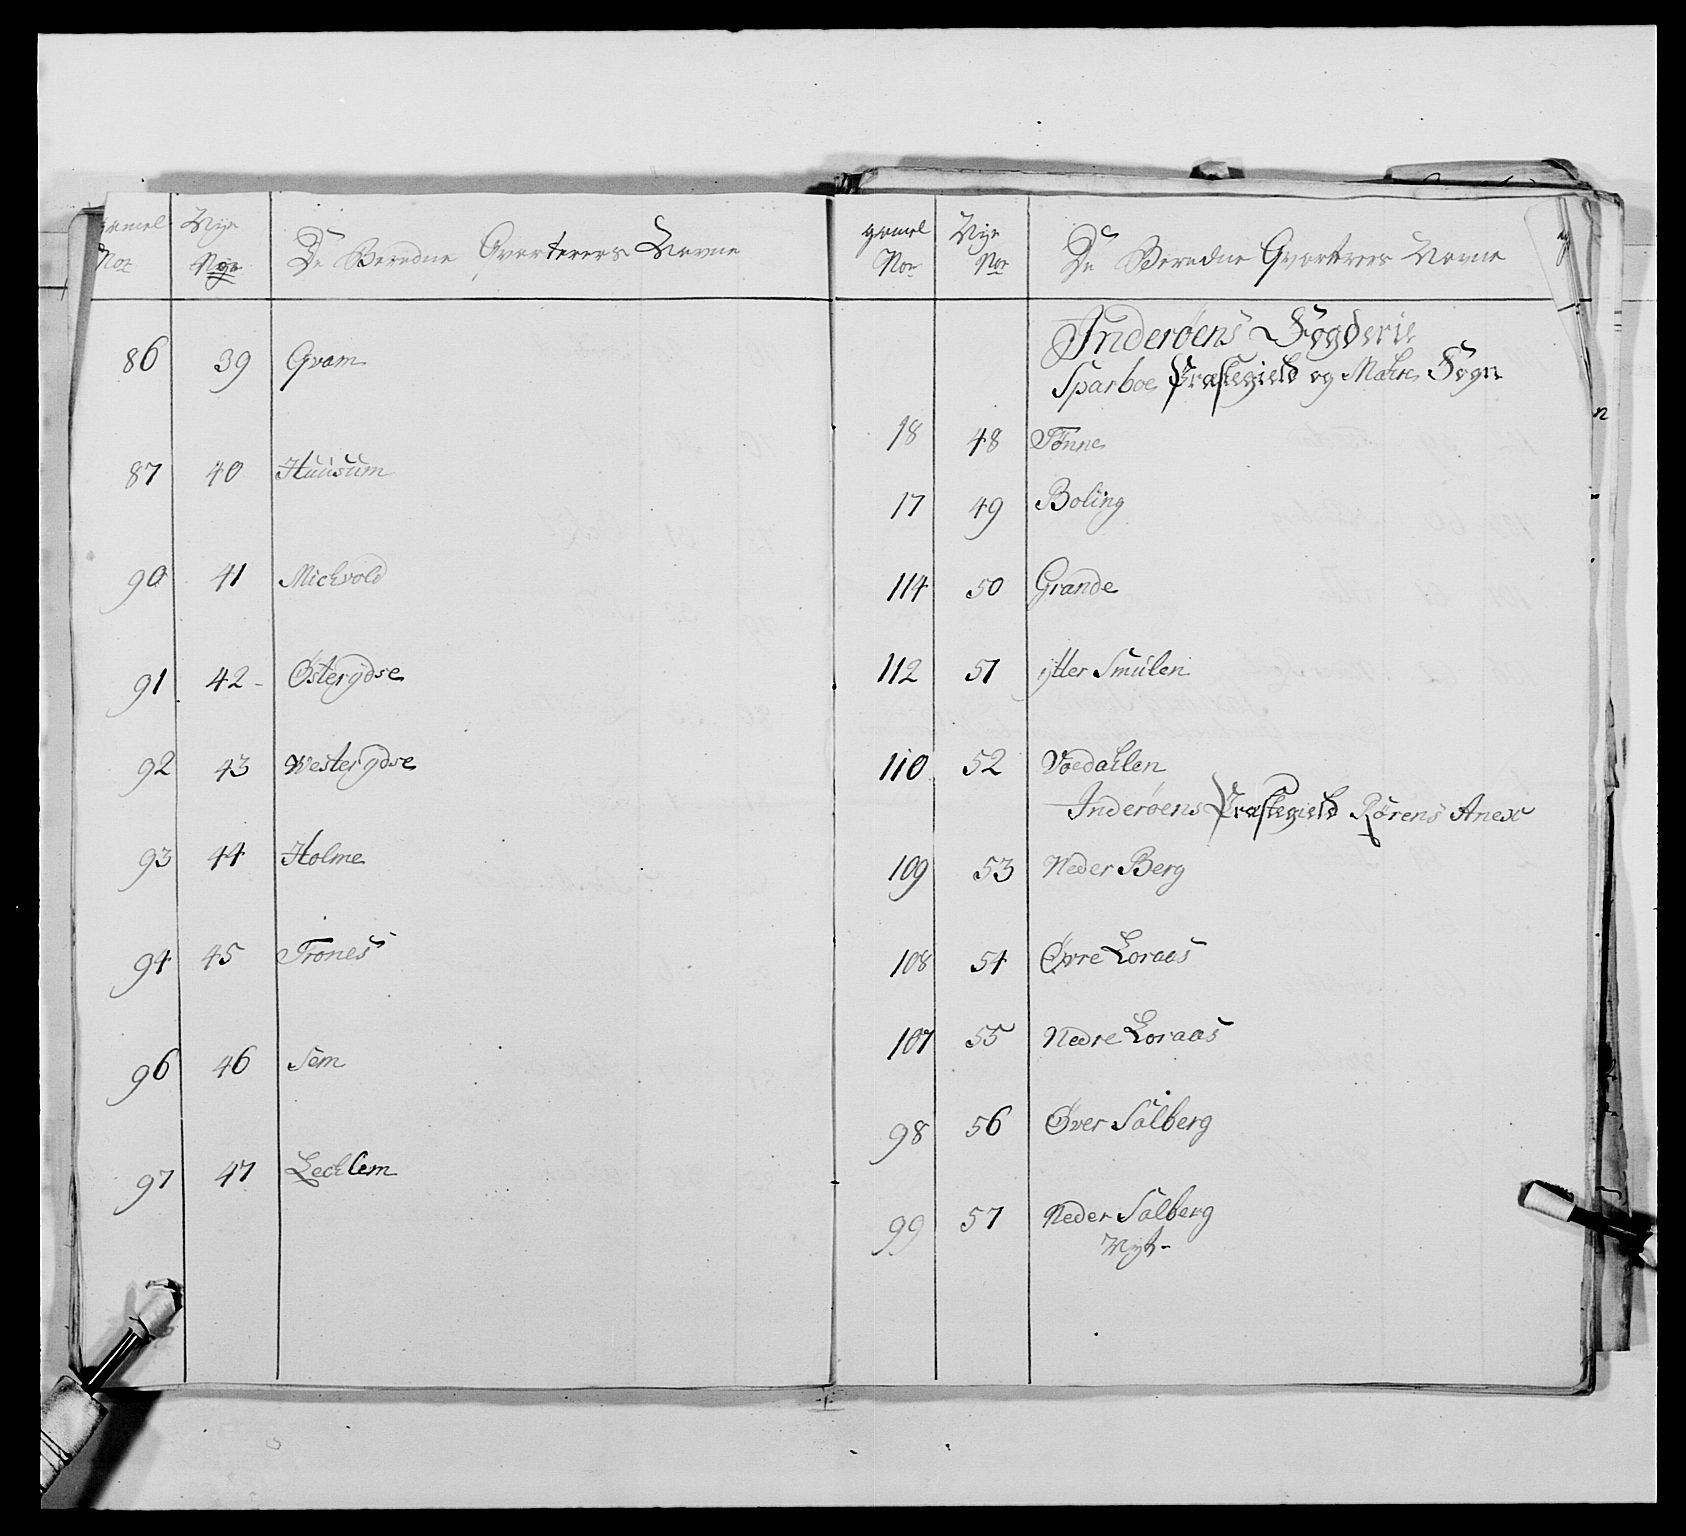 gamel Nye De Beredne Qvarterers Navne
Nor Nor
86 39 Qvam
87 40 Huusum
90 41 Michvold
91 42 - Østerydse
92 43 Westerydse
93 44 Holme
94 45 Trones
96 46 Sem
97 47 Lechlem
gamel Nye De Beredne Qvartrers Navne
Nor Nor
Inderøens Fogderie
Sparboe Præstegield og Mahre Sogn
18 48 Tønne
17 49 Boling
114 50 Grande
112 51 ytter Smulen
110 52 Voedahlen
Inderøens Præstegield Rørens Anex
109 53 Neder Berg
108 54 Øvre Loraas
107 55 Nedre Loraas
98 56 Over Salberg
99 57 Neder Salberg
Nyt-